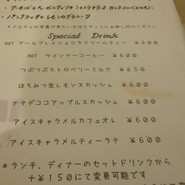 Special Drink
HOT アールグレイショコラクリームティー ￥600
HOT ウインナーコーヒー ￥600
つぶつぶストロベリーミルク ￥650
はちみつ生レモンスカッシュ ￥600
ナタデココアップルスカッシュ ￥600
アイスキャラメルカフェオレ ￥600
アイスキャラメルティーラテ ￥600
※ランチ、ディナーのセットドリンクから
＋￥150にて変更可能です